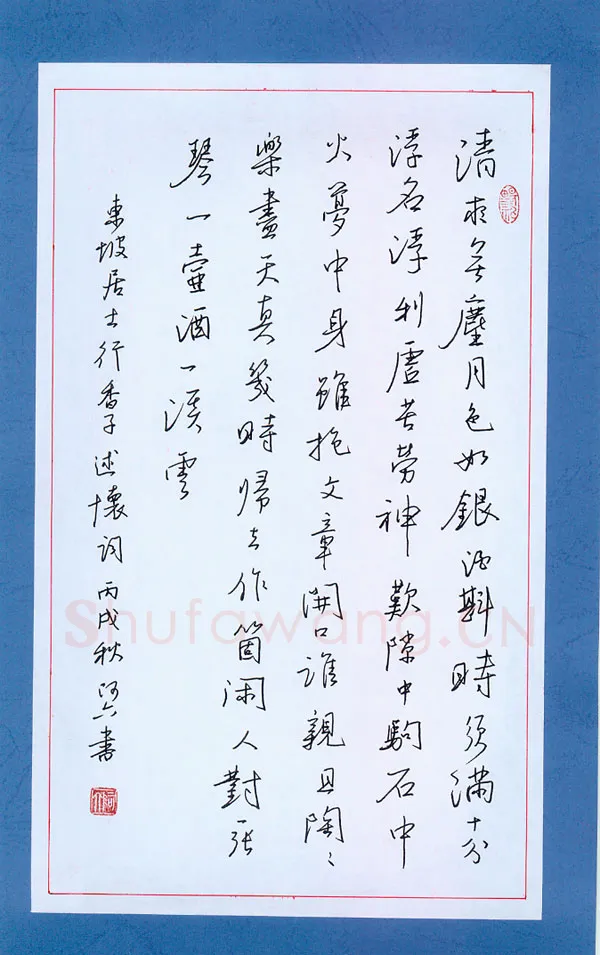 清夜無塵月色如銀酒斟時須滿十分
浮名浮利虛苦勞神歎隙中駒石中
火夢中身雖抱文章開口誰親且陶〻
樂盡天真幾時歸去作箇閑人對一張
琴一壺酒一溪雲
東坡居士行香子述懷詞丙戌秋阿六書
Shufawang.CN